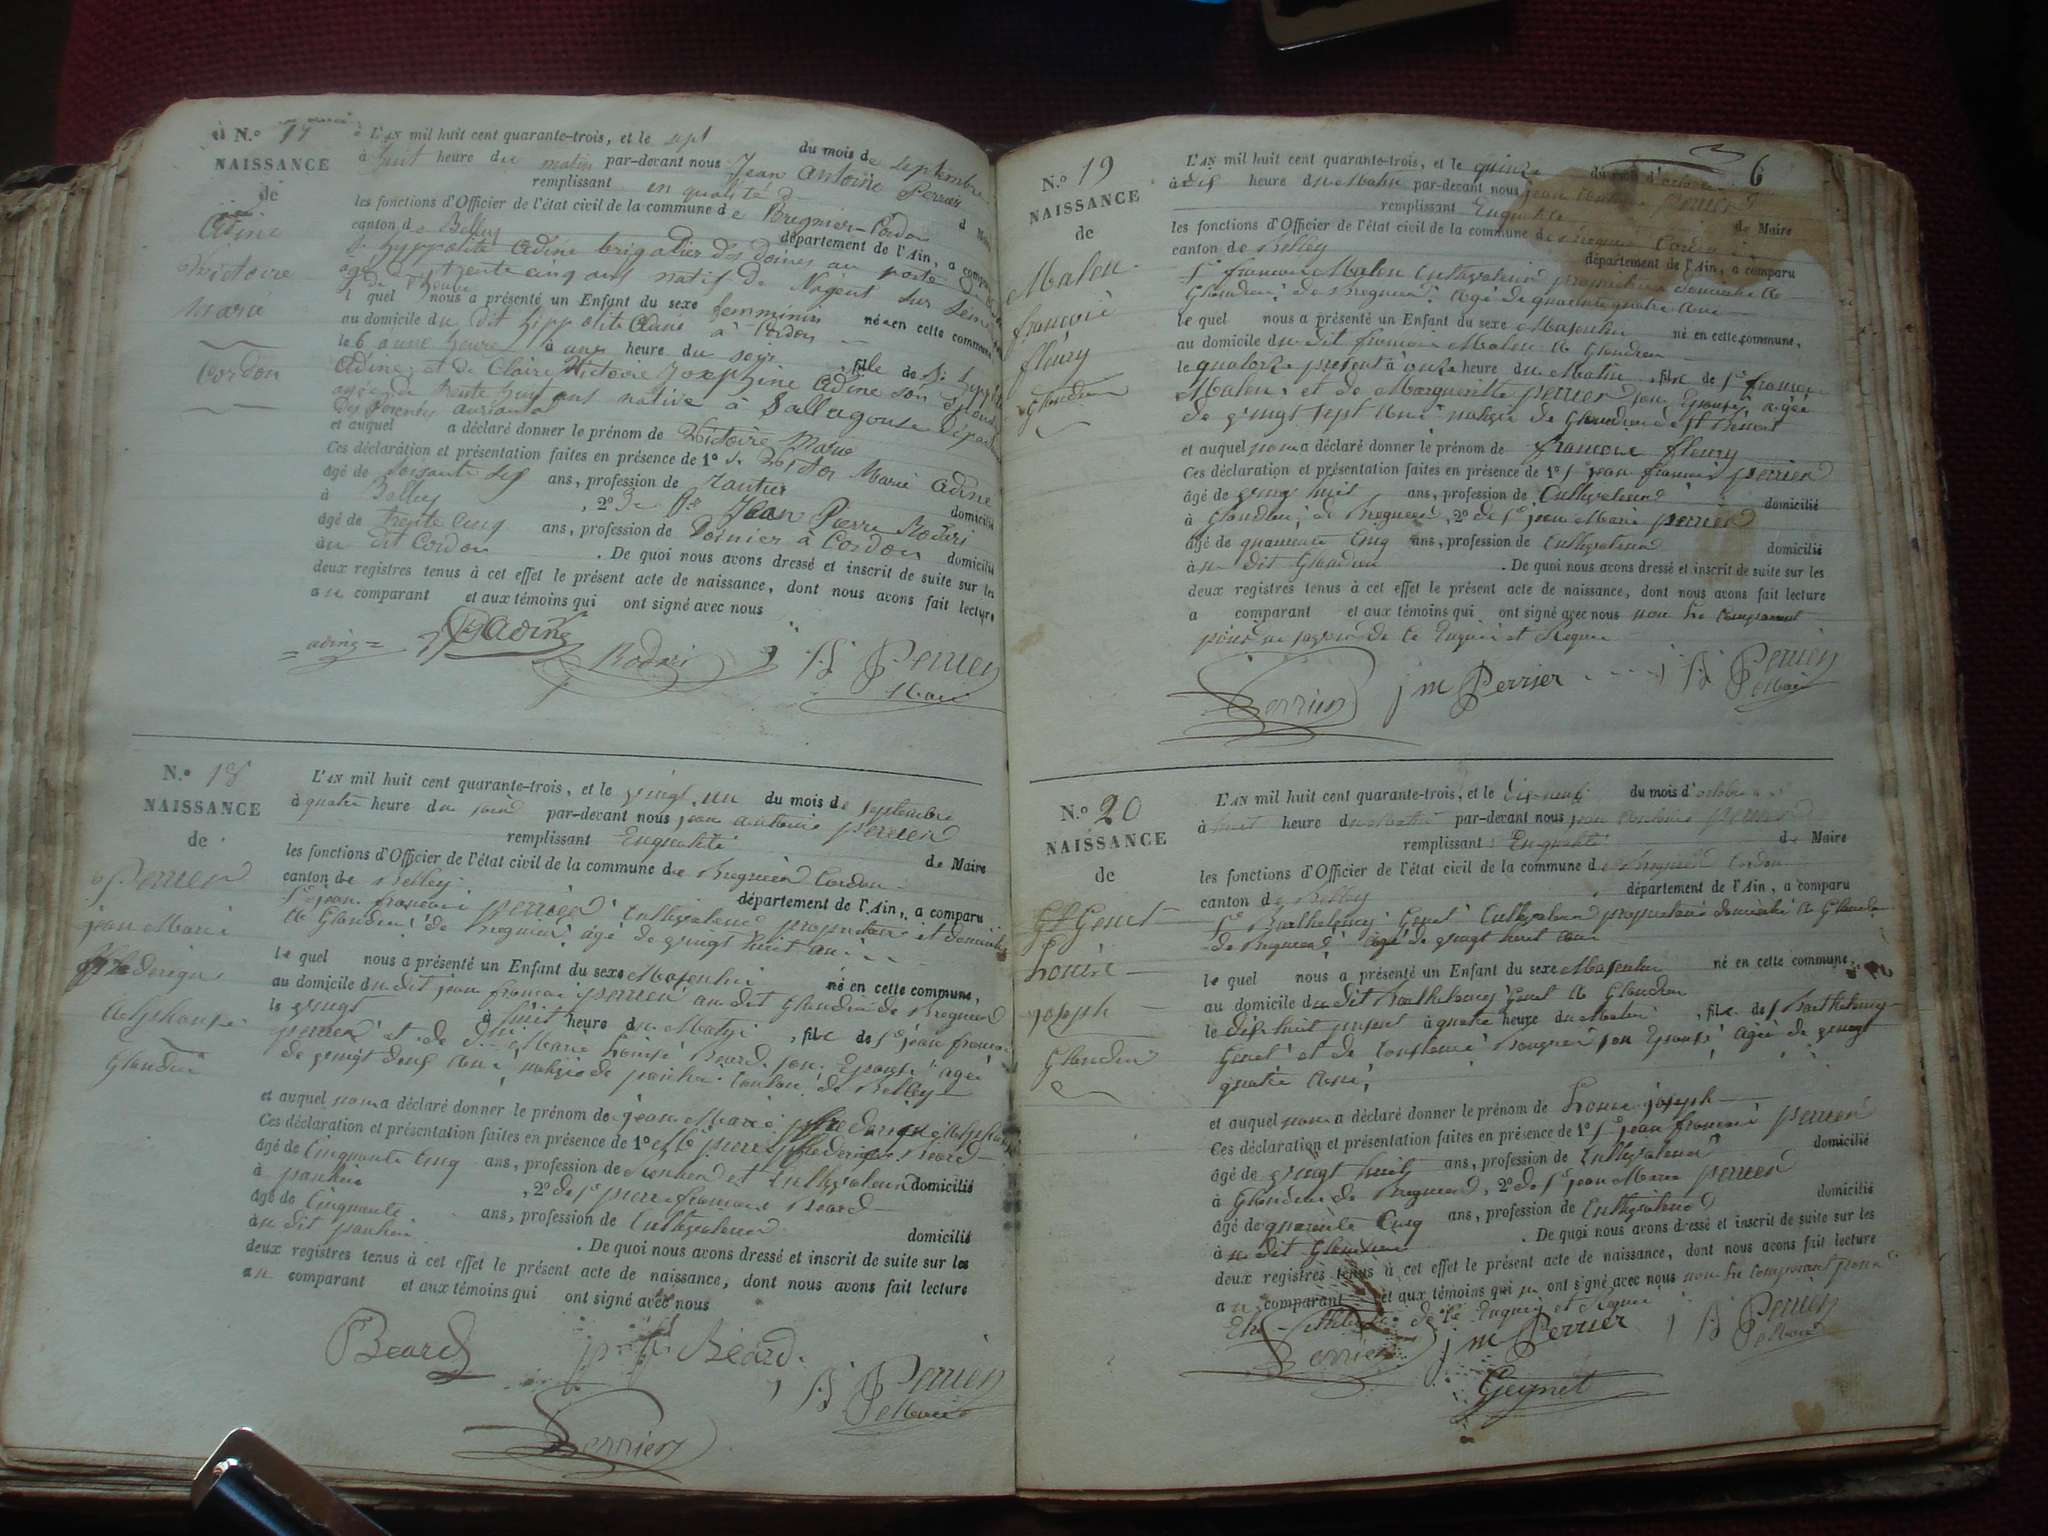 N.º 17
NAISSANCE
de
Adine
Victoire
Marie
Cordon
L'AN mil huit cent quarante-trois, et le sept du mois de septembre
à huit heure du matin par-devant nous Jean Antoine Perrier
remplissant en qualité de Maire
les fonctions d'Officier de l'état civil de la commune de Bregnier-Cordon
canton de Belley département de l'Ain, a comparu
hyppolite Adine brigadier des doines au poste
âgé de trente cinq ans natif de Nogent sur Seine
le quel nous a présenté un Enfant du sexe femminin né en cette commune
au domicile du dit hippolite Adine à Cordon
le 6 à heure du soir, fille de
Adine, et de Claire Victoire Josephine Adine son épouse
agée de trente huit ans native à Sallagouse
des Pirenés
et auquel a déclaré donner le prénom de Victoire Marie
Ces déclaration et présentation faites en présence de 1º Victor Marie Adine
âgé de soisante ans, profession de rantier domicilié
à Belley, 2º Jean Pierre Rodari
âgé de trente cinq ans, profession de Doinier à Cordon domicilié
au dit Cordon. De quoi nous avons dressé et inscrit de suite sur les
deux registres tenus à cet effet le présent acte de naissance, dont nous avons fait lecture
au comparant et aux témoins qui ont signé avec nous
adine Adine Rodari Perrier
Maire
N.º 18
NAISSANCE
de
Perrier
jean Marie
phrederique
Alphonse
Glandieu
L'AN mil huit cent quarante-trois, et le vingt un du mois de septembre
à quatre heure du soir par-devant nous jean antoine perrier
remplissant Enqualité de Maire
les fonctions d'Officier de l'état civil de la commune de Bregnier Cordon
canton de Belley département de l'Ain, a comparu
Sr jean francois perrier Cultivateur propriétaire et domicilié
à Glandieu de Bregnier âgé de vingt huit ans
le quel nous a présenté un Enfant du sexe Masculin né en cette commune,
au domicile du dit jean francois perrier au dit Glandieu de Bregnier
le vingt à huit heure du Matin, fils de Sr jean francois
perrier et de Marie Louise Beard son Epouse agée
de vingt deux ans native de canton de Belley
et auquel nous a déclaré donner le prénom de jean Marie phrederique Alphonse
Ces déclaration et présentation faites en présence de 1º pierre phrederique Beard
âgé de Cinquante Cinq ans, profession de Rentier et Cultivateur domicilié
à, 2º de Sr pierre francois Beard
âgé de Cinquante ans, profession de Cultivateur domicilié
au dit. De quoi nous avons dressé et inscrit de suite sur les
deux registres tenus à cet effet le présent acte de naissance, dont nous avons fait lecture
au comparant et aux témoins qui ont signé avec nous
Beard Béard
Perrier
Maire
Perrier
6
N.º 19
NAISSANCE
de
Malen
francois
fleury
Glandieu
L'AN mil huit cent quarante-trois, et le quinze du mois d'octobre
à dix heure du Matin par-devant nous jean antoine perrier
remplissant Enqualité de Maire
les fonctions d'Officier de l'état civil de la commune de Bregnier Cordon
canton de Belley département de l'Ain, a comparu
Sr francois Malen Cultivateur propriétaire domicilié à
Glandieu de Bregnier âgé de quarante quatre ans
le quel nous a présenté un Enfant du sexe Masculin né en cette commune,
au domicile du dit francois Malen à Glandieu
le quatorze présent à onze heure du Matin, fils de Sr francois
Malen et de Marguerite perrier son Epouse agée
de vingt sept ans native de Glandieu
et auquel nous a déclaré donner le prénom de francois fleury
Ces déclaration et présentation faites en présence de 1º Sr jean francois perrier
âgé de vingt huit ans, profession de Cultivateur domicilié
à Glandieu de Bregnier, 2º de Sr jean Marie perrier
âgé de quarante Cinq ans, profession de Cultivateur domicilié
au dit Glandieu. De quoi nous avons dressé et inscrit de suite sur les
deux registres tenus à cet effet le présent acte de naissance, dont nous avons fait lecture
a comparant et aux témoins qui ont signé avec nous non le comparant
pour ne savoir de ce Enquis et Requis
Perrier jm Perrier Perrier
Maire
N.º 20
NAISSANCE
de
Genet
Louis
joseph
Glandieu
L'AN mil huit cent quarante-trois, et le dix neuf du mois d'octobre
à huit heure du Matin par-devant nous jean antoine perrier
remplissant Enqualité de Maire
les fonctions d'Officier de l'état civil de la commune de Bregnier Cordon
canton de Belley département de l'Ain, a comparu
Sr Barthelemy Genet Cultivateur propriétaire domicilié à Glandieu
de Bregnier âgé de vingt huit ans
le quel nous a présenté un Enfant du sexe Masculin né en cette commune,
au domicile du dit Barthelemy Genet à Glandieu
le dix huit présent à quatre heure du Matin, fils de Sr Barthelemy
Genet et de Constance son Epouse agée de vingt
quatre ans,
et auquel nous a déclaré donner le prénom de Louis joseph
Ces déclaration et présentation faites en présence de 1º Sr jean francois perrier
âgé de vingt huit ans, profession de Cultivateur domicilié
à Glandieu de Bregnier, 2º de Sr jean Marie perrier
âgé de quarante Cinq ans, profession de Cultivateur domicilié
au dit Glandieu. De quoi nous avons dressé et inscrit de suite sur les
deux registres tenus à cet effet le présent acte de naissance, dont nous avons fait lecture
au comparant et aux témoins qui ont signé avec nous non le comparant pour
de ce Enquis et Requis
Perrier jm Perrier Perrier
Maire
Geynet